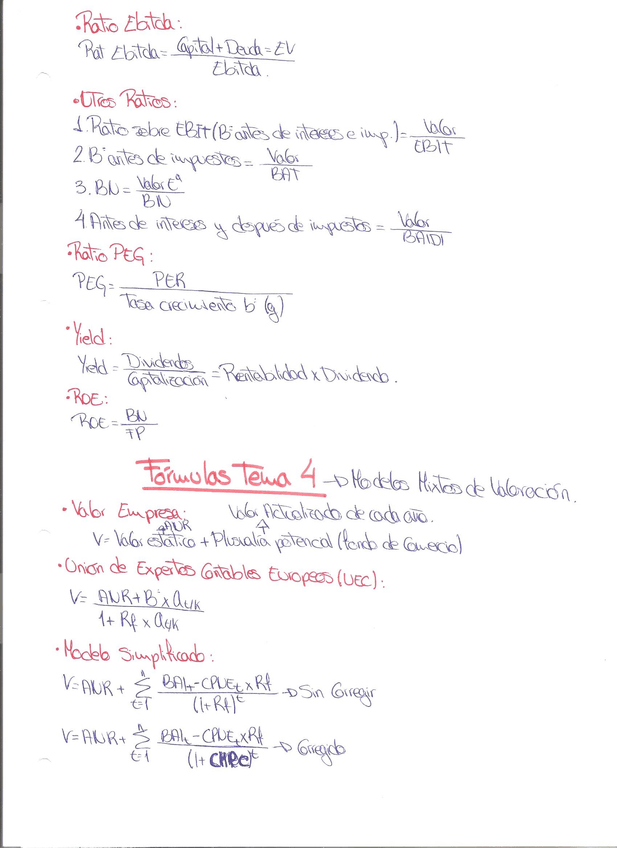 •Ratio Ebitda:
Rat Ebitda = Capital + Deuda = EV / Ebitda.
•Otros Ratios:
1. Ratio sobre EBIT (Bº antes de intereses e imp.) = Valor / EBIT
2. Bº antes de impuestos = Valor / BAT
3. BN = Valor Eª / BN
4 Antes de intereses y después de impuestos = Valor / BAIDI
•Ratio PEG:
PEG = PER / Tasa crecimiento bº (g)
•Yield:
Yield = Dividendos / Capitalización = Rentabilidad x Dividendo.
•ROE:
ROE = BN / FP
Fórmulas Tema 4 → Modelos Mixtos de Valoración.
• Valor Empresa: Valor Actualizado de cada año.
↱ANR
V = Valor estático + Plusvalía potencial (Fondo de Comercio)
• Unión de Expertos Contables Europeos (UEC):
V = ANR + Bº x a n¬K / 1 + Rf x a n¬K
• Modelo Simplificado:
V = ANR + Σ n t=1 BAt - CPNEt x Rf / (1+Rf)^t → Sin Corregir
V = ANR + Σ n t=1 BAt - CPNEt x Rf / (1+ CMPC)^t → Corregido